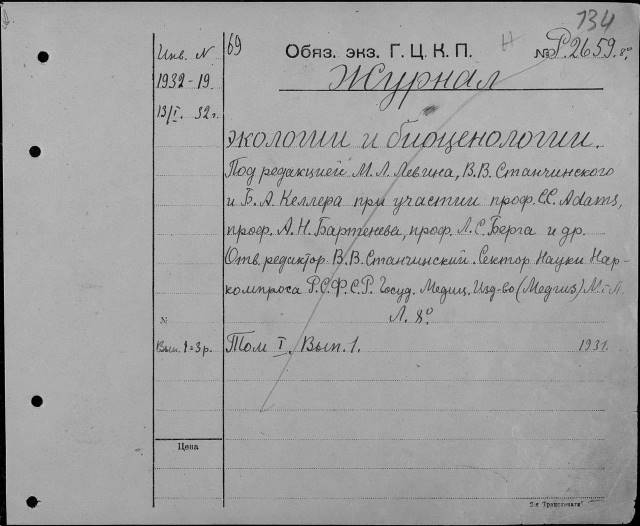 134
Инв. N 69 Обяз. экз. Г.Ц.К.П. Н № Р.2659. 8°.
1932-19 Журнал
13/I. 32 г.
экологии и биоценологии.
Под редакцией М. Л. Левина, В. В. Станчинского
и Б. А. Келлера при участии проф. С.С. Adams,
проф. А. Н. Бартенева, проф. Л. С. Берга и др.
Отв. редактор В. В. Станчинский. Сектор Науки Нар-
компроса Р.С.Ф.С.Р. Госуд. Медиц. Изд-во (Медгиз) М.-Л.
№ Л. 8°.
Вып. 1=3 р. Том I. Вып. 1. 1931.
Цена